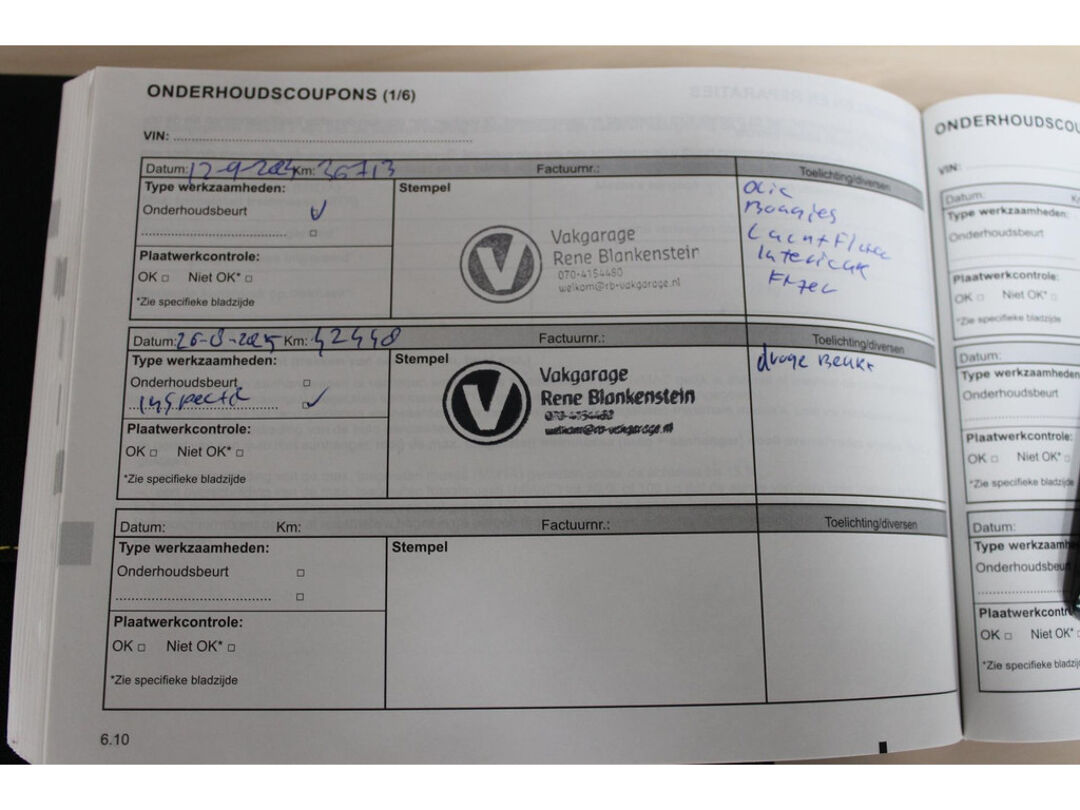 ONDERHOUDSCOUPONS (1/6)
VIN:
Datum: 12-9-2024 Km: 36713 Factuurnr.: Toelichting/diversen
Type werkzaamheden:
Onderhoudsbeurt
Stempel
Plaatwerkcontrole:
OK Niet OK*
*Zie specifieke bladzijde
Vakgarage
Rene Blankenstein
070-4154480
welkom@rb-vakgarage.nl
olie
Bougies
Interieur
Datum: 26-8-2025 Km: 42448 Factuurnr.: Toelichting/diversen
Type werkzaamheden:
Onderhoudsbeurt
inspectie
Stempel
Plaatwerkcontrole:
OK Niet OK*
*Zie specifieke bladzijde
Vakgarage
Rene Blankenstein
070-4154480
welkom@rb-vakgarage.nl
Datum: Km: Factuurnr.: Toelichting/diversen
Type werkzaamheden:
Onderhoudsbeurt
Stempel
Plaatwerkcontrole:
OK Niet OK*
*Zie specifieke bladzijde
6.10
ONDERHOUDSCOU
VIN:
Datum:
Type werkzaamheden:
Onderhoudsbeurt
Plaatwerkcontrole:
OK Niet OK*
*Zie specifieke bladzijde
Datum:
Type werkzaamheden
Onderhoudsbeurt
Plaatwerkcontrole:
OK Niet OK*
*Zie specifieke bladzijde
Datum:
Type werkzaamh
Onderhoudsbeu
Plaatwerkcontr
OK Niet OK*
*Zie specifieke bladzij